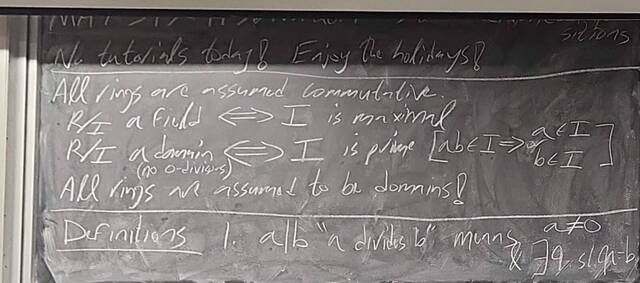 No tutorials today! Enjoy the holidays!
All rings are assumed commutative.
R/I a field ⟺ I is maximal
R/I a domain ⟺ I is prime [ab∈I ⇒ a∈I or b∈I]
(no 0-divisors)
All rings are assumed to be domains!
Definitions 1. a|b "a divides b" means a≠0
& ∃q s.t. qa=b